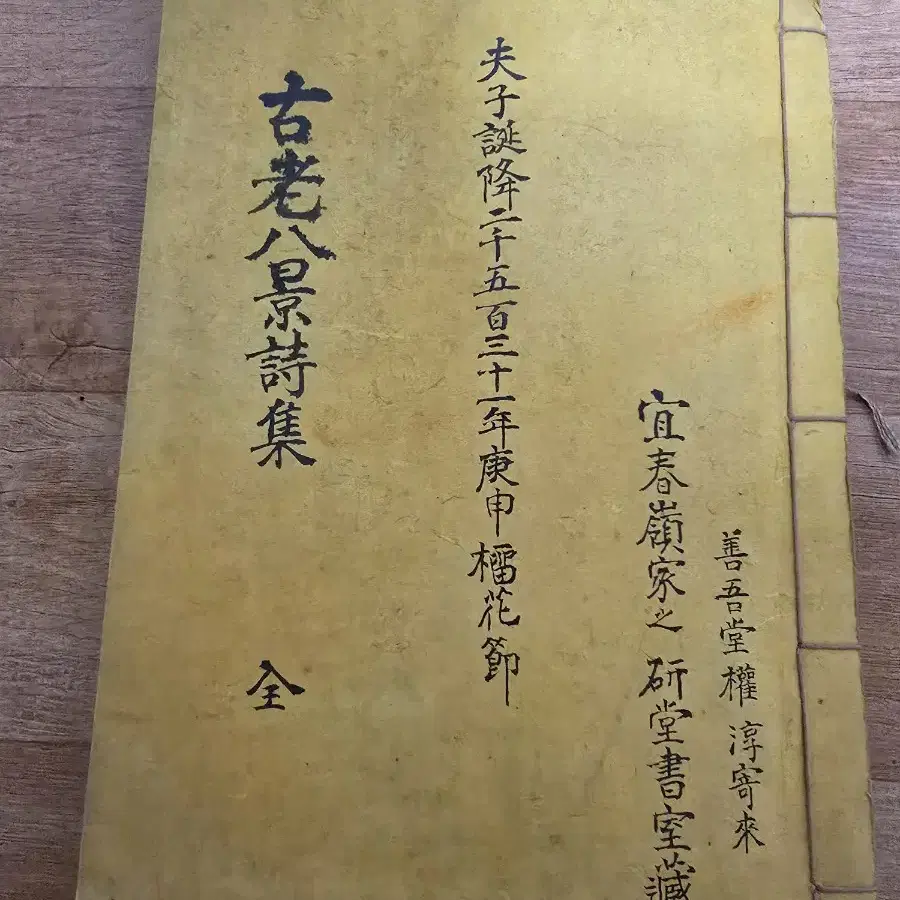 善吾堂權 淳寄來
宜春嶺家之 硏堂書室藏
夫子誕降二千五百三十一年庚申榴花節
古老八景詩集 全